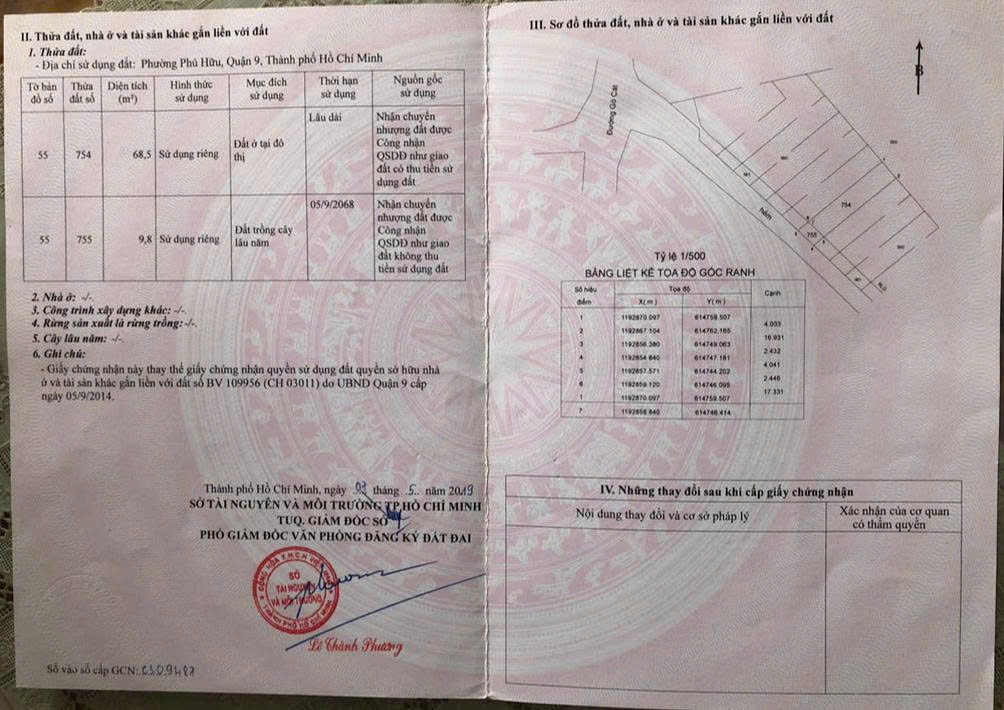 II. Thửa đất, nhà ở và tài sản khác gắn liền với đất
1. Thửa đất:
- Địa chỉ sử dụng đất: Phường Phú Hữu, Quận 9, Thành phố Hồ Chí Minh
Tờ bản đồ số | Thửa đất số | Diện tích (m²) | Hình thức sử dụng | Mục đích sử dụng | Thời hạn sử dụng | Nguồn gốc sử dụng
55 | 754 | 68,5 | Sử dụng riêng | Đất ở tại đô thị | Lâu dài | Nhận chuyển nhượng đất được Công nhận QSDĐ như giao đất có thu tiền sử dụng đất
55 | 755 | 9,8 | Sử dụng riêng | Đất trồng cây lâu năm | 05/9/2068 | Nhận chuyển nhượng đất được Công nhận QSDĐ như giao đất không thu tiền sử dụng đất
2. Nhà ở: -/-.
3. Công trình xây dựng khác: -/-.
4. Rừng sản xuất là rừng trồng: -/-.
5. Cây lâu năm: -/-.
6. Ghi chú:
- Giấy chứng nhận này thay thế giấy chứng nhận quyền sử dụng đất quyền sở hữu nhà
ở và tài sản khác gắn liền với đất số BV 109956 (CH 03011) do UBND Quận 9 cấp
ngày 05/9/2014.
Thành phố Hồ Chí Minh, ngày 03 tháng 5 năm 2019
SỞ TÀI NGUYÊN VÀ MÔI TRƯỜNG TP.HỒ CHÍ MINH
TUQ. GIÁM ĐỐC SỞ
PHÓ GIÁM ĐỐC VĂN PHÒNG ĐĂNG KÝ ĐẤT ĐAI
SỞ
TÀI NGUYÊN
VÀ MÔI TRƯỜNG
Lê Thành Phương
Số vào sổ cấp GCN:
III. Sơ đồ thửa đất, nhà ở và tài sản khác gắn liền với đất
B
Đường Gò Cát
hẻm
754
755
Tỷ lệ 1/500
BẢNG LIỆT KÊ TỌA ĐỘ GÓC RANH
Số hiệu điểm | Tọa độ | Cạnh
X(m) | Y(m)
1 | 1192870.097 | 614759.507
4.003
2 | 1192867.104 | 614762.165
16.931
3 | 1192856.380 | 614749.063
2.432
4 | 1192854.640 | 614747.181
4.041
5 | 1192857.571 | 614744.202
2.446
6 | 1192859.120 | 614746.095
17.331
1 | 1192870.097 | 614759.507
7 | 1192856.640 | 614746.414
IV. Những thay đổi sau khi cấp giấy chứng nhận
Nội dung thay đổi và cơ sở pháp lý | Xác nhận của cơ quan có thẩm quyền